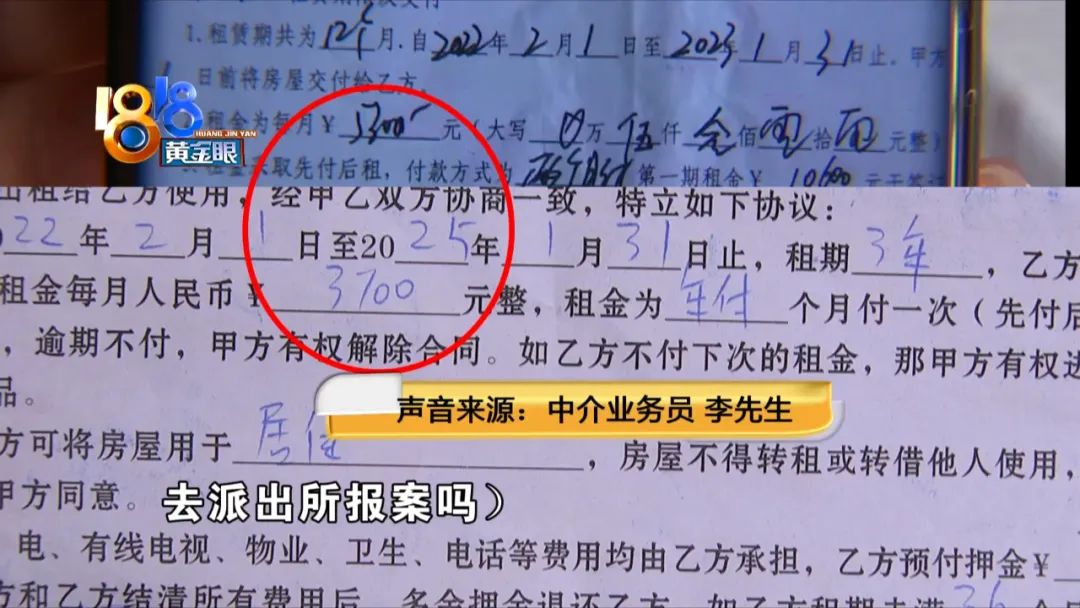 1.租赁期共为12个月.自2022年2月1日至2023年1月31日止.甲方
日前将房屋交付给乙方。
租金为每月￥5300元(大写 0万伍仟叁佰零拾零元整)
取先付后租,付款方式为 第一期租金￥10600元于签订
1818
HUANG JIN YAN
黄金眼
出租给乙方使用,经甲乙双方协商一致,特立如下协议:
22年2月1日至2025年1月31日止,租期3年,乙方
租金每月人民币￥3700元整,租金为年付个月付一次(先付后
,逾期不付,甲方有权解除合同。如乙方不付下次的租金,那甲方有权进
品。
声音来源:中介业务员 李先生
方可将房屋用于居住,房屋不得转租或转借他人使用,
甲方同意。
去派出所报案吗)
电、有线电视、物业、卫生、电话等费用均由乙方承担,乙方预付押金￥
方和乙方结清所有费用后,多余押金退还乙方,如乙方租期未满36个